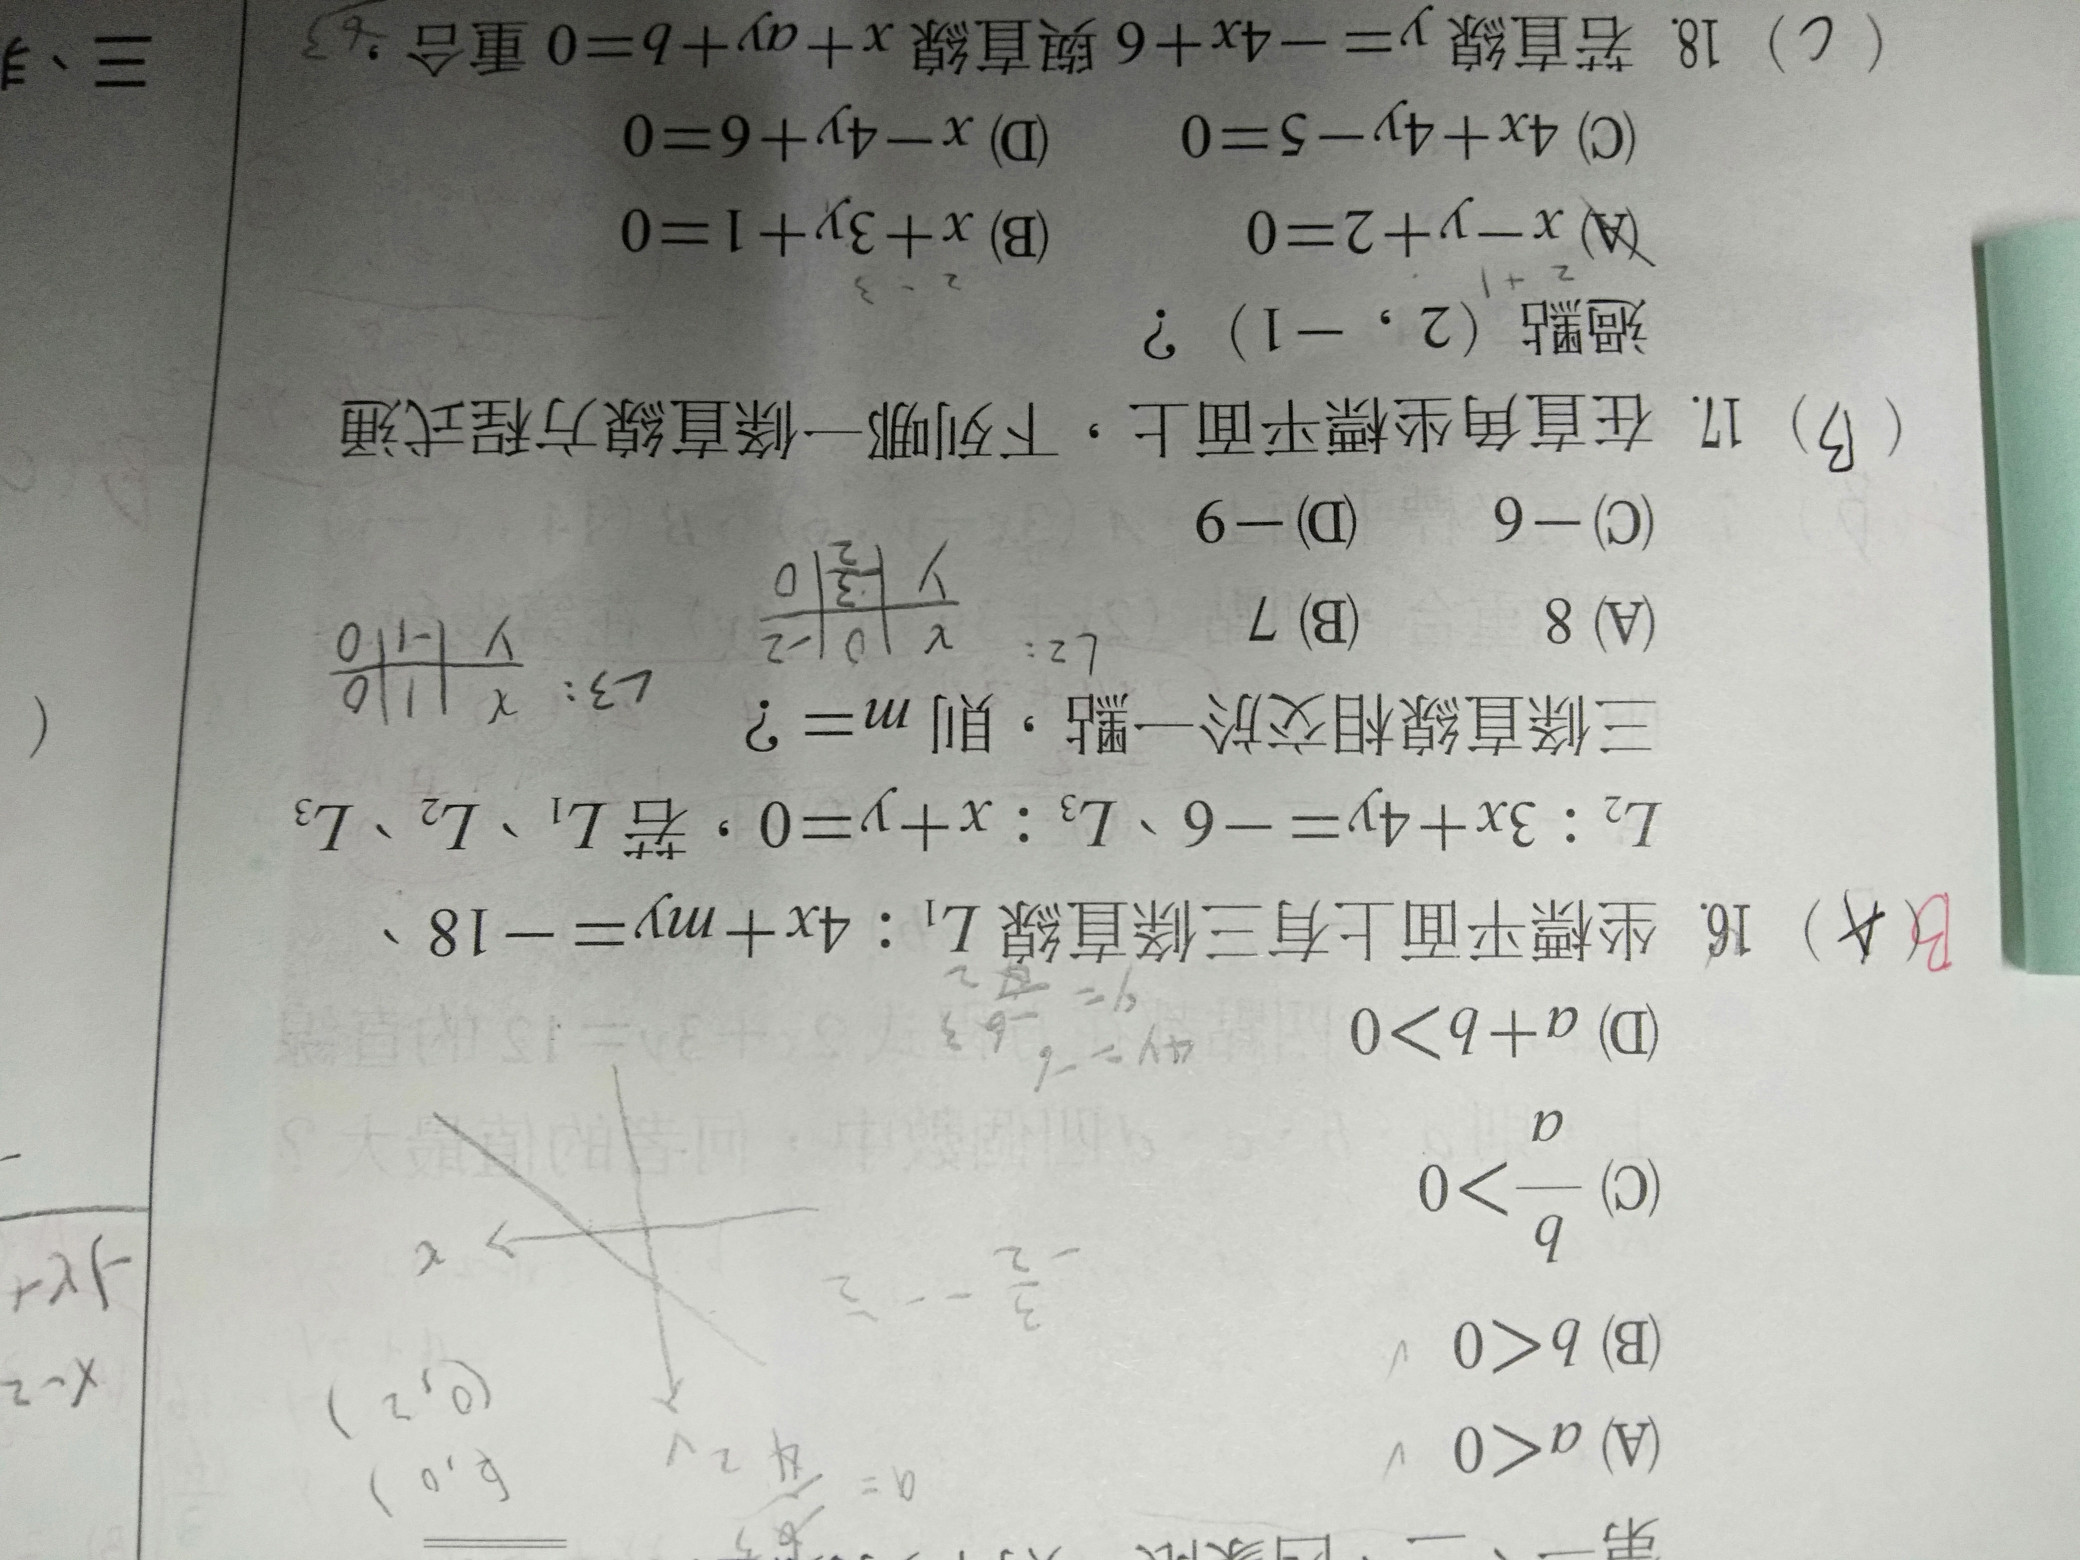 (A) a<0
(B) b<0
(C) b/a>0
(D) a+b>0
a=
(0,2)
x
4y=-6
(A) B 16. 坐標平面上有三條直線 L₁：4x+my=-18、
L₂：3x+4y=-6、L₃：x+y=0，若 L₁、L₂、L₃
三條直線相交於一點，則 m=？
L2: x 0 -2
y -3/2 0
L3: x 1 0
y -1 0
(A) 8 (B) 7
(C) -6 (D) -9
(B) 17. 在直角坐標平面上，下列哪一條直線方程式通
過點（2，-1）？
2+1 2-3
(A) x-y+2=0 (B) x+3y+1=0
(C) 4x+4y-5=0 (D) x-4y+6=0
(C) 18. 若直線 y=-4x+6 與直線 x+ay+b=0 重合，
三、
x-2